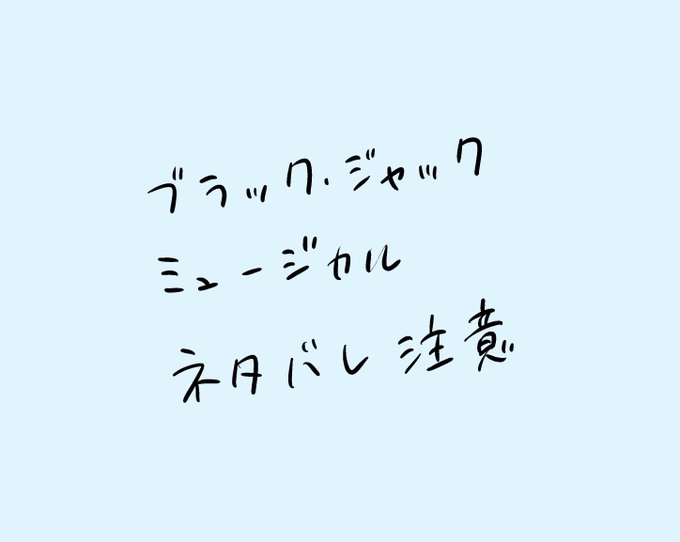 ブラック・ジャック
ミュージカル
ネタバレ注意